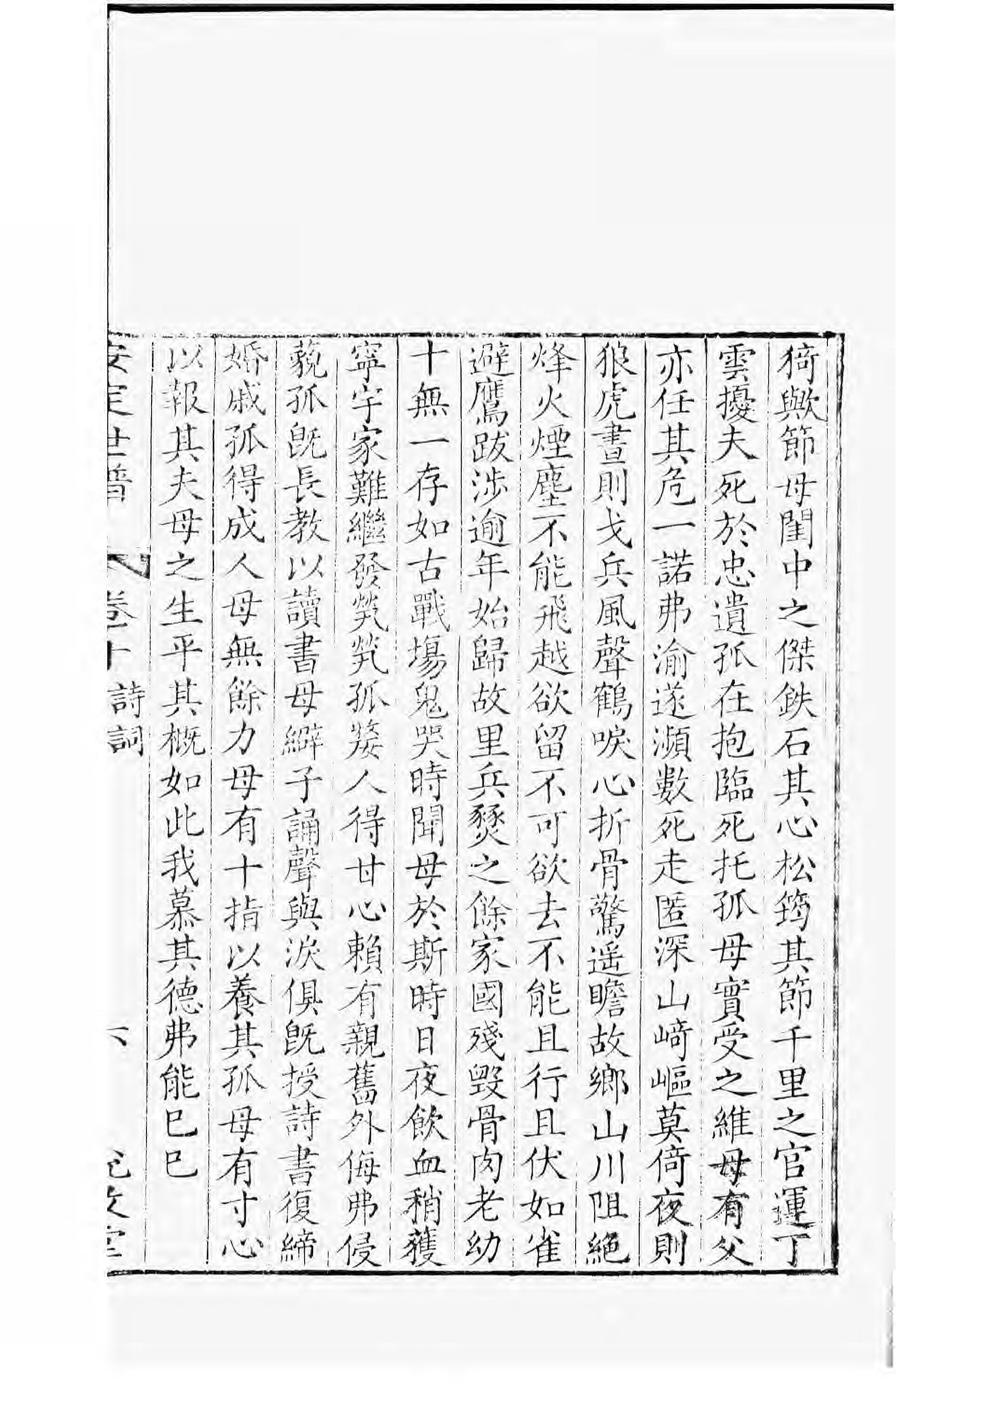 猗歟節母閨中之傑鉄石其心松筠其節千里之官運丁
雲擾夫死於忠遺孤在抱臨死托孤母實受之維母有父
亦任其危一諾弗渝遂瀕數死走匿深山崎嶇莫倚夜則
狼虎晝則戈兵風聲鶴唳心折骨驚遥瞻故鄉山川阻絕
烽火煙塵不能飛越欲留不可欲去不能且行且伏如雀
避鷹跋涉逾年始歸故里兵燹之餘家國殘毀骨肉老幼
十無一存如古戰場鬼哭時聞母於斯時日夜飲血稍獲
寧宇家難繼發煢煢孤嫠人得甘心賴有親舊外侮弗侵
藐孤旣長教以讀書母纑子誦聲與淚俱旣授詩書復締
婚戚孤得成人母無餘力母有十指以養其孤母有寸心
以報其夫母之生平其概如此我慕其德弗能巳巳
安定世譜
卷十
詩詞
六